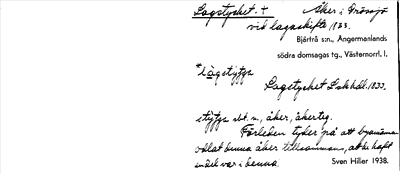 Lagstycket. + Åker i Mossjö
vid lagaskifte 1933.
Bjärtrå s:n., Ångermanlands
södra domsagas tg., Västernorrl. l.
Lagstycket Lskhdl. 1933.
sbst. n., åker, åkerteg.
Förleden tyder på att byamännen
odlat denna åker tillsammans, att de haft
andel var i denna. Sven Hiller 1938.